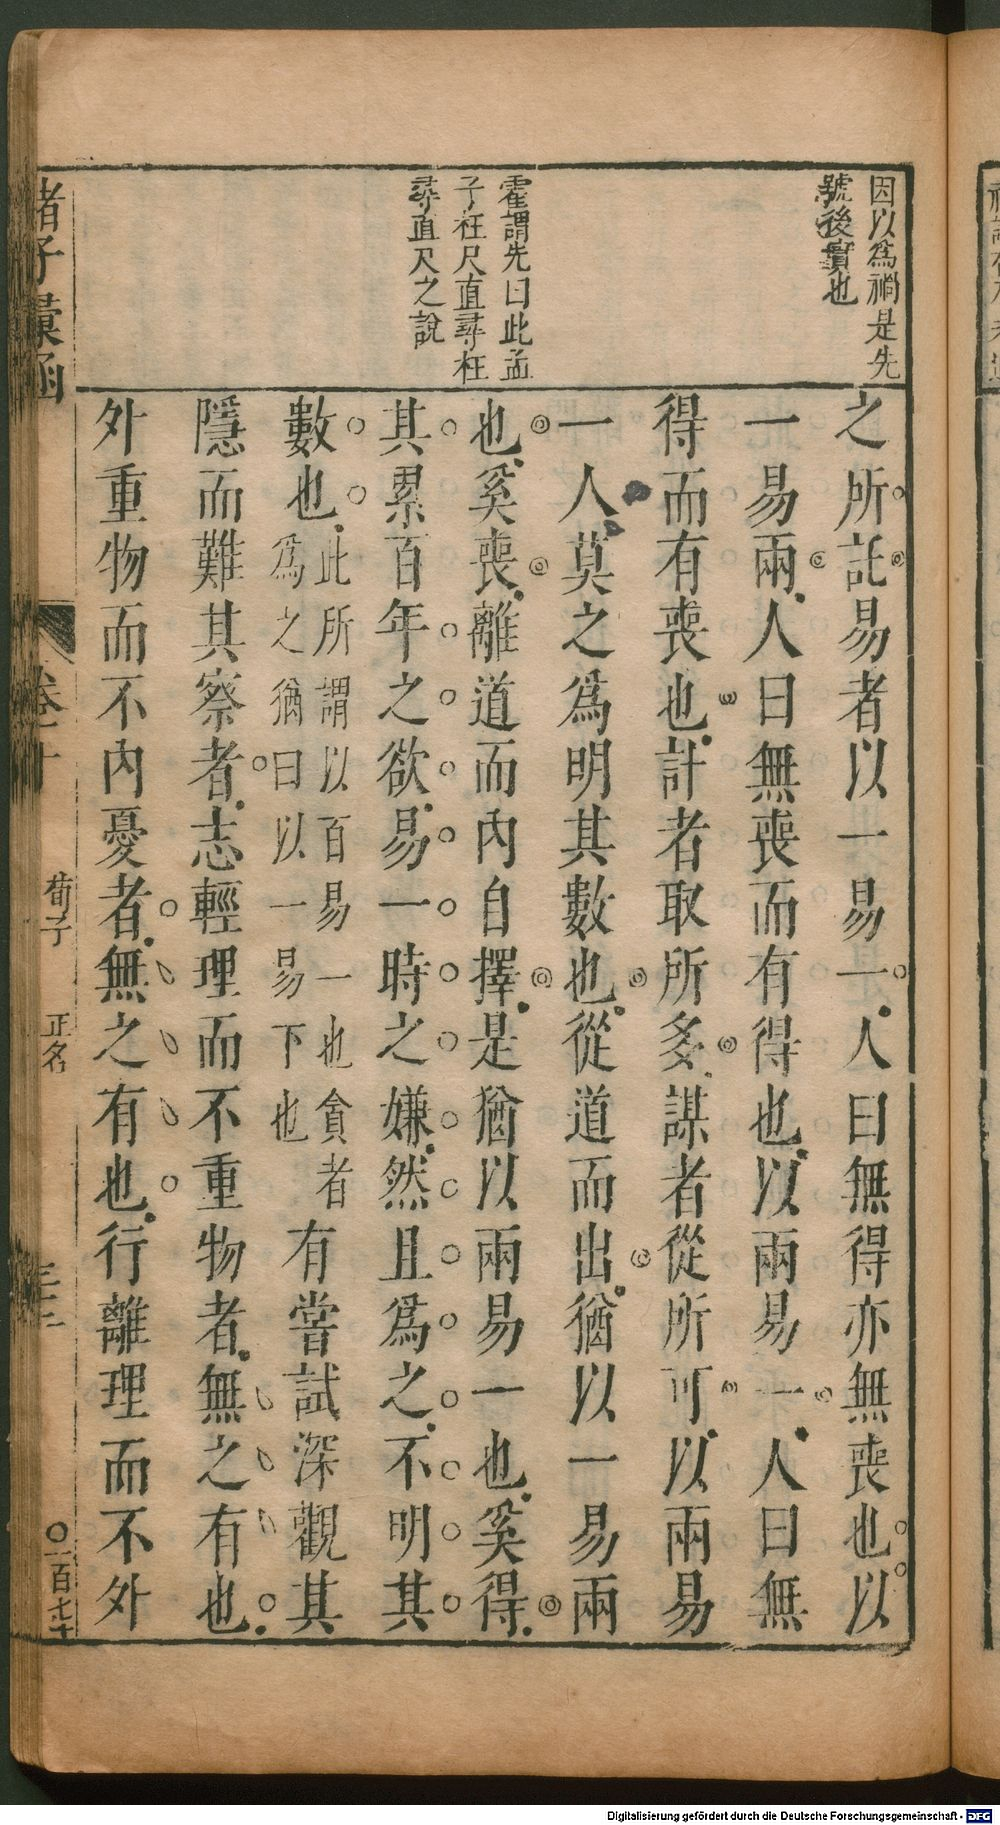 因以爲禍是先
號後實也
霍謂先曰此孟
子枉尺直尋枉
尋直尺之說
之所託易者以一易一人曰無得亦無喪也以
一易兩人曰無喪而有得也以兩易一人曰無
得而有喪也計者取所多謀者從所可以兩易
一人莫之爲明其數也從道而出猶以一易兩
也奚喪離道而內自擇是猶以兩易一也奚得
其累百年之欲易一時之嫌然且爲之不明其
數也此所謂以百易一也貪者
爲之猶曰以一易下也
有嘗試深觀其
隱而難其察者志輕理而不重物者無之有也
外重物而不內憂者無之有也行離理而不外
諸子彙函
卷十
荀子
正名
一百七十
Digitalisierung gefördert durch die Deutsche Forschungsgemeinschaft - DFG